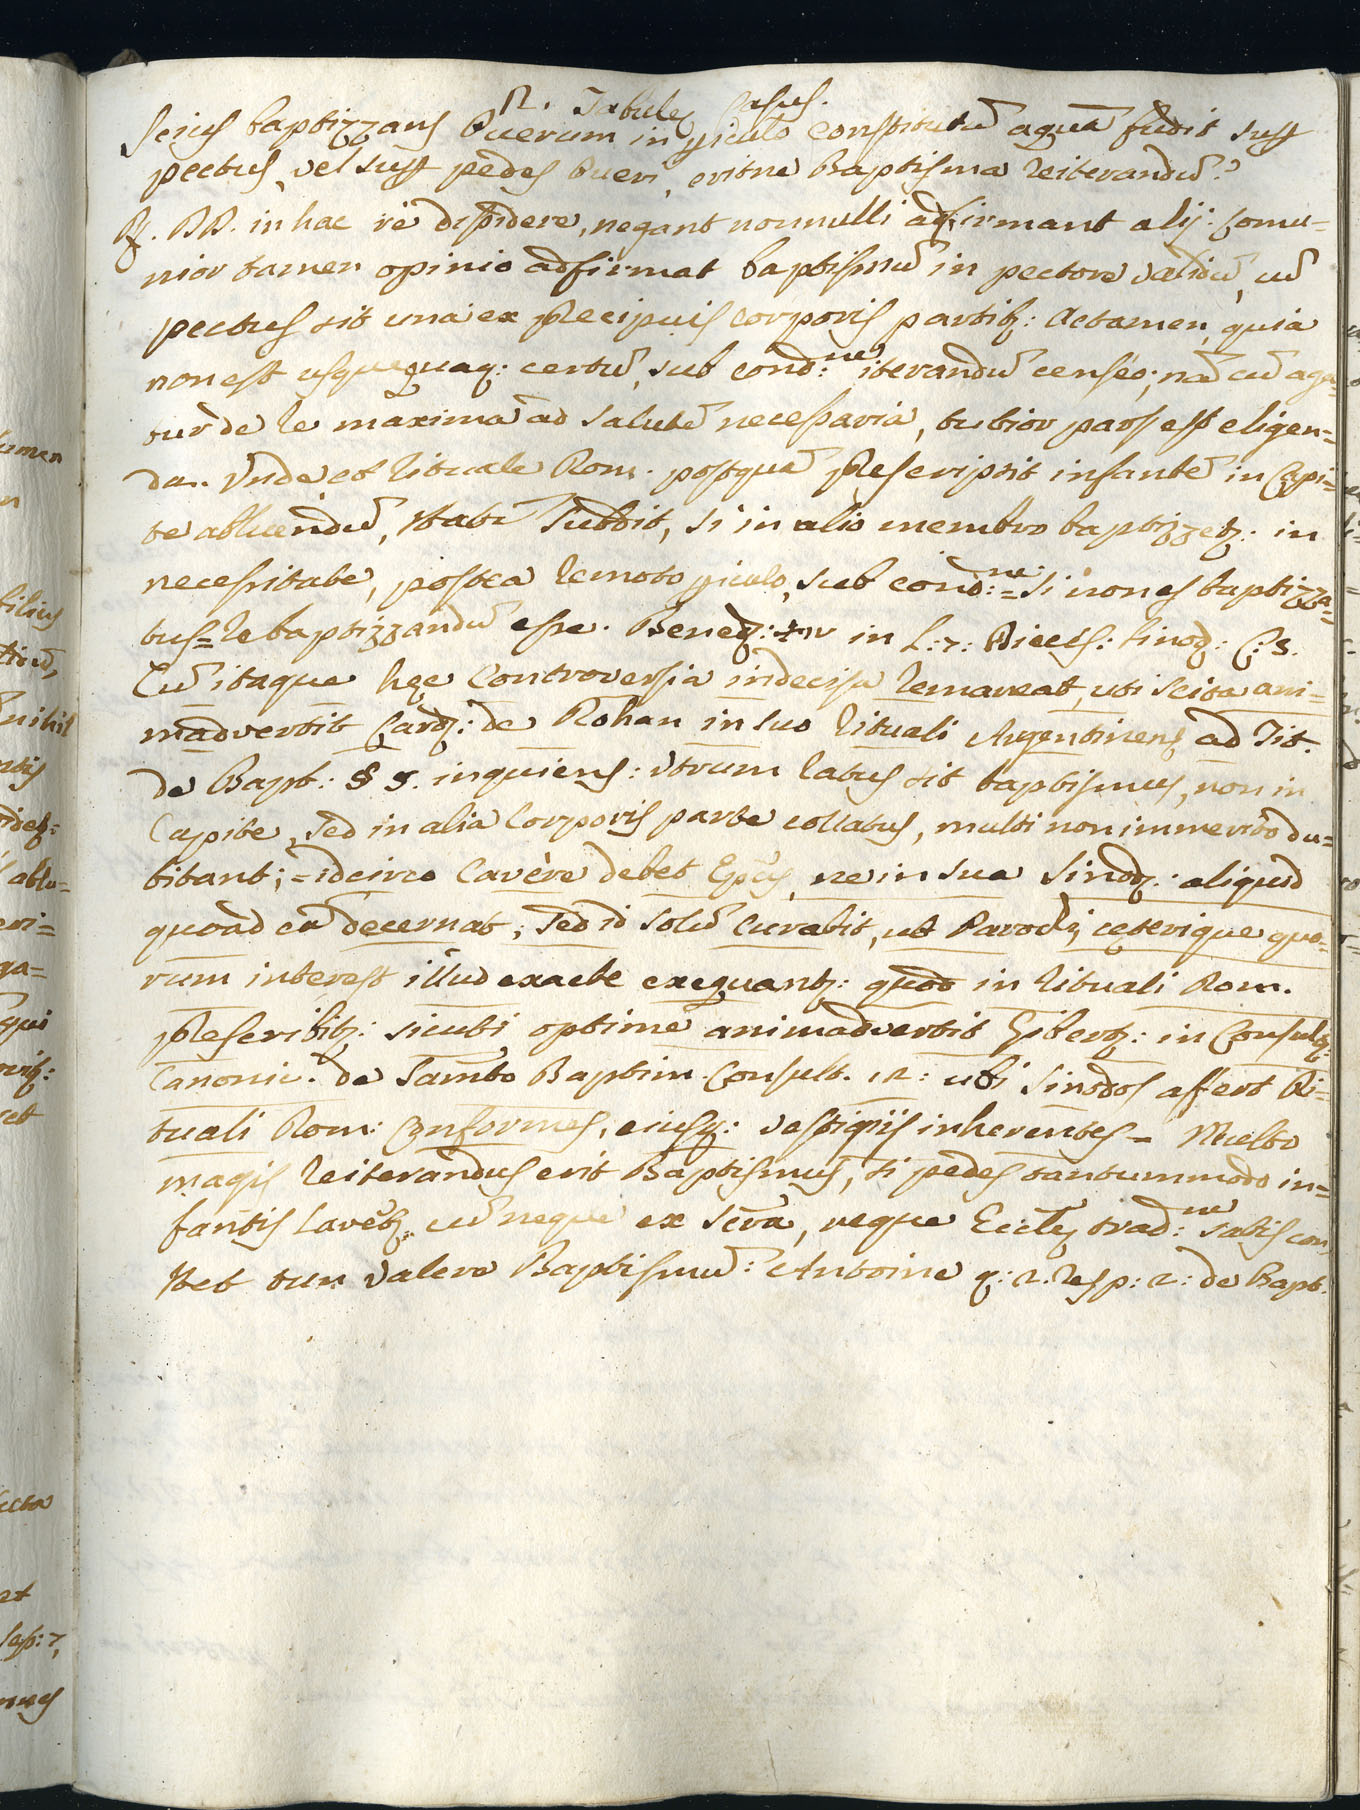 2. Tabulę Casus.
Seius baptizzans Puerum in piculo constitutũ aquã fudit sup
pectus, vel sup pedes Pueri, eritne Baptisma reiterandũ?
R. DD. in hac re dissidere, negant nonnulli adfirmant alij: comu=
nior tamen opinio adfirmat baptismũ in pectore validũ, cũ
pectus sit una ex precipuis corporis partib: Actamen, quia
non est usquequaq: certũ, sub cond:ne iterandũ censeo; nã cũ aga=
tur de re maxima ad salutẽ necessaria, tutior pars est eligen=
da. Unde et Rituale Rom. postquã prescripsit infantẽ in Capi=
te abluendũ, statĩ subdit, si in alio membro baptizzetr: in
necessitate, postea remoto piculo, sub cond:ne = si non es baptizza=
tus = rebaptizzandũ esse. Bened: XIV in L: 7: Diects: Sinod: C: 5.
Cũ itaque hęc controversia indecisa remaneat, uti scita ani=
madvertit Card: de Rohan in suo Rituali Argentinens ad Tit.
de Bapt: § 9. inquiens: Utrum ratus sit baptismus, non in
Capite, sed in alia Corporis parte collatus, multi non immerito du=
bitant; = idcirco Cavere debet Epus, ne in sua Sinod: aliquid
quoad eã decernat, sed id solũ curabit, ut Parochi, ceterique quo=
rum interest illud exacte exequantr: quod in Rituali Rom.
prescribitr: sicuti optime animadvertit Gibert: in Consult:
Canonic: de Samto Baptim. Consult. 12: ubi Sinodos affert Ri=
tuali Rom: Conformes, eiusq: vestigiis inherentes = Multo
magis reiterandus erit Baptismus, si pedes tantummodo in=
fantis lavetr: cũ neque ex Scra, neque Eccle trad:ne satis con
stet tum valere Baptismũ: Antoine q: 2. resp: 2: de Bapt.